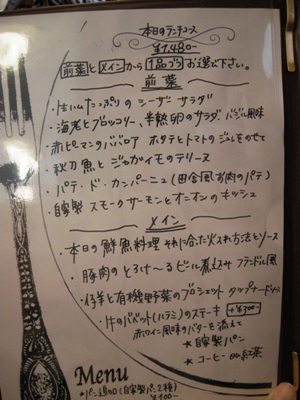 本日のランチコース
¥1,480-
前菜とメインから1品づつお選び下さい。
前菜
・生ハムたっぷりのシーザーサラダ
・海老とブロッコリー、半熟卵のサラダ バジル風味
・赤ピーマンのババロア ホタテとトマトのジュレをのせて
・秋刀魚とジャガイモのテリーヌ
・パテ・ド・カンパーニュ(田舎風お肉のパテ)
・自家製 スモークサーモンとオニオンのキッシュ
メイン
・本日の鮮魚料理 それに合った火入れ方法とソース
・豚肉のとろけ〜るビール煮込み フランドル風
・仔羊と有機野菜のブロシェット タップナードソース
・牛のバベット(ハラミ)のステーキ +¥300-
赤ワイン風味のバターを添えて
★自家製パン
★コーヒー or 紅茶
Menu
*パン追加(自家製パン2種)
¥100-